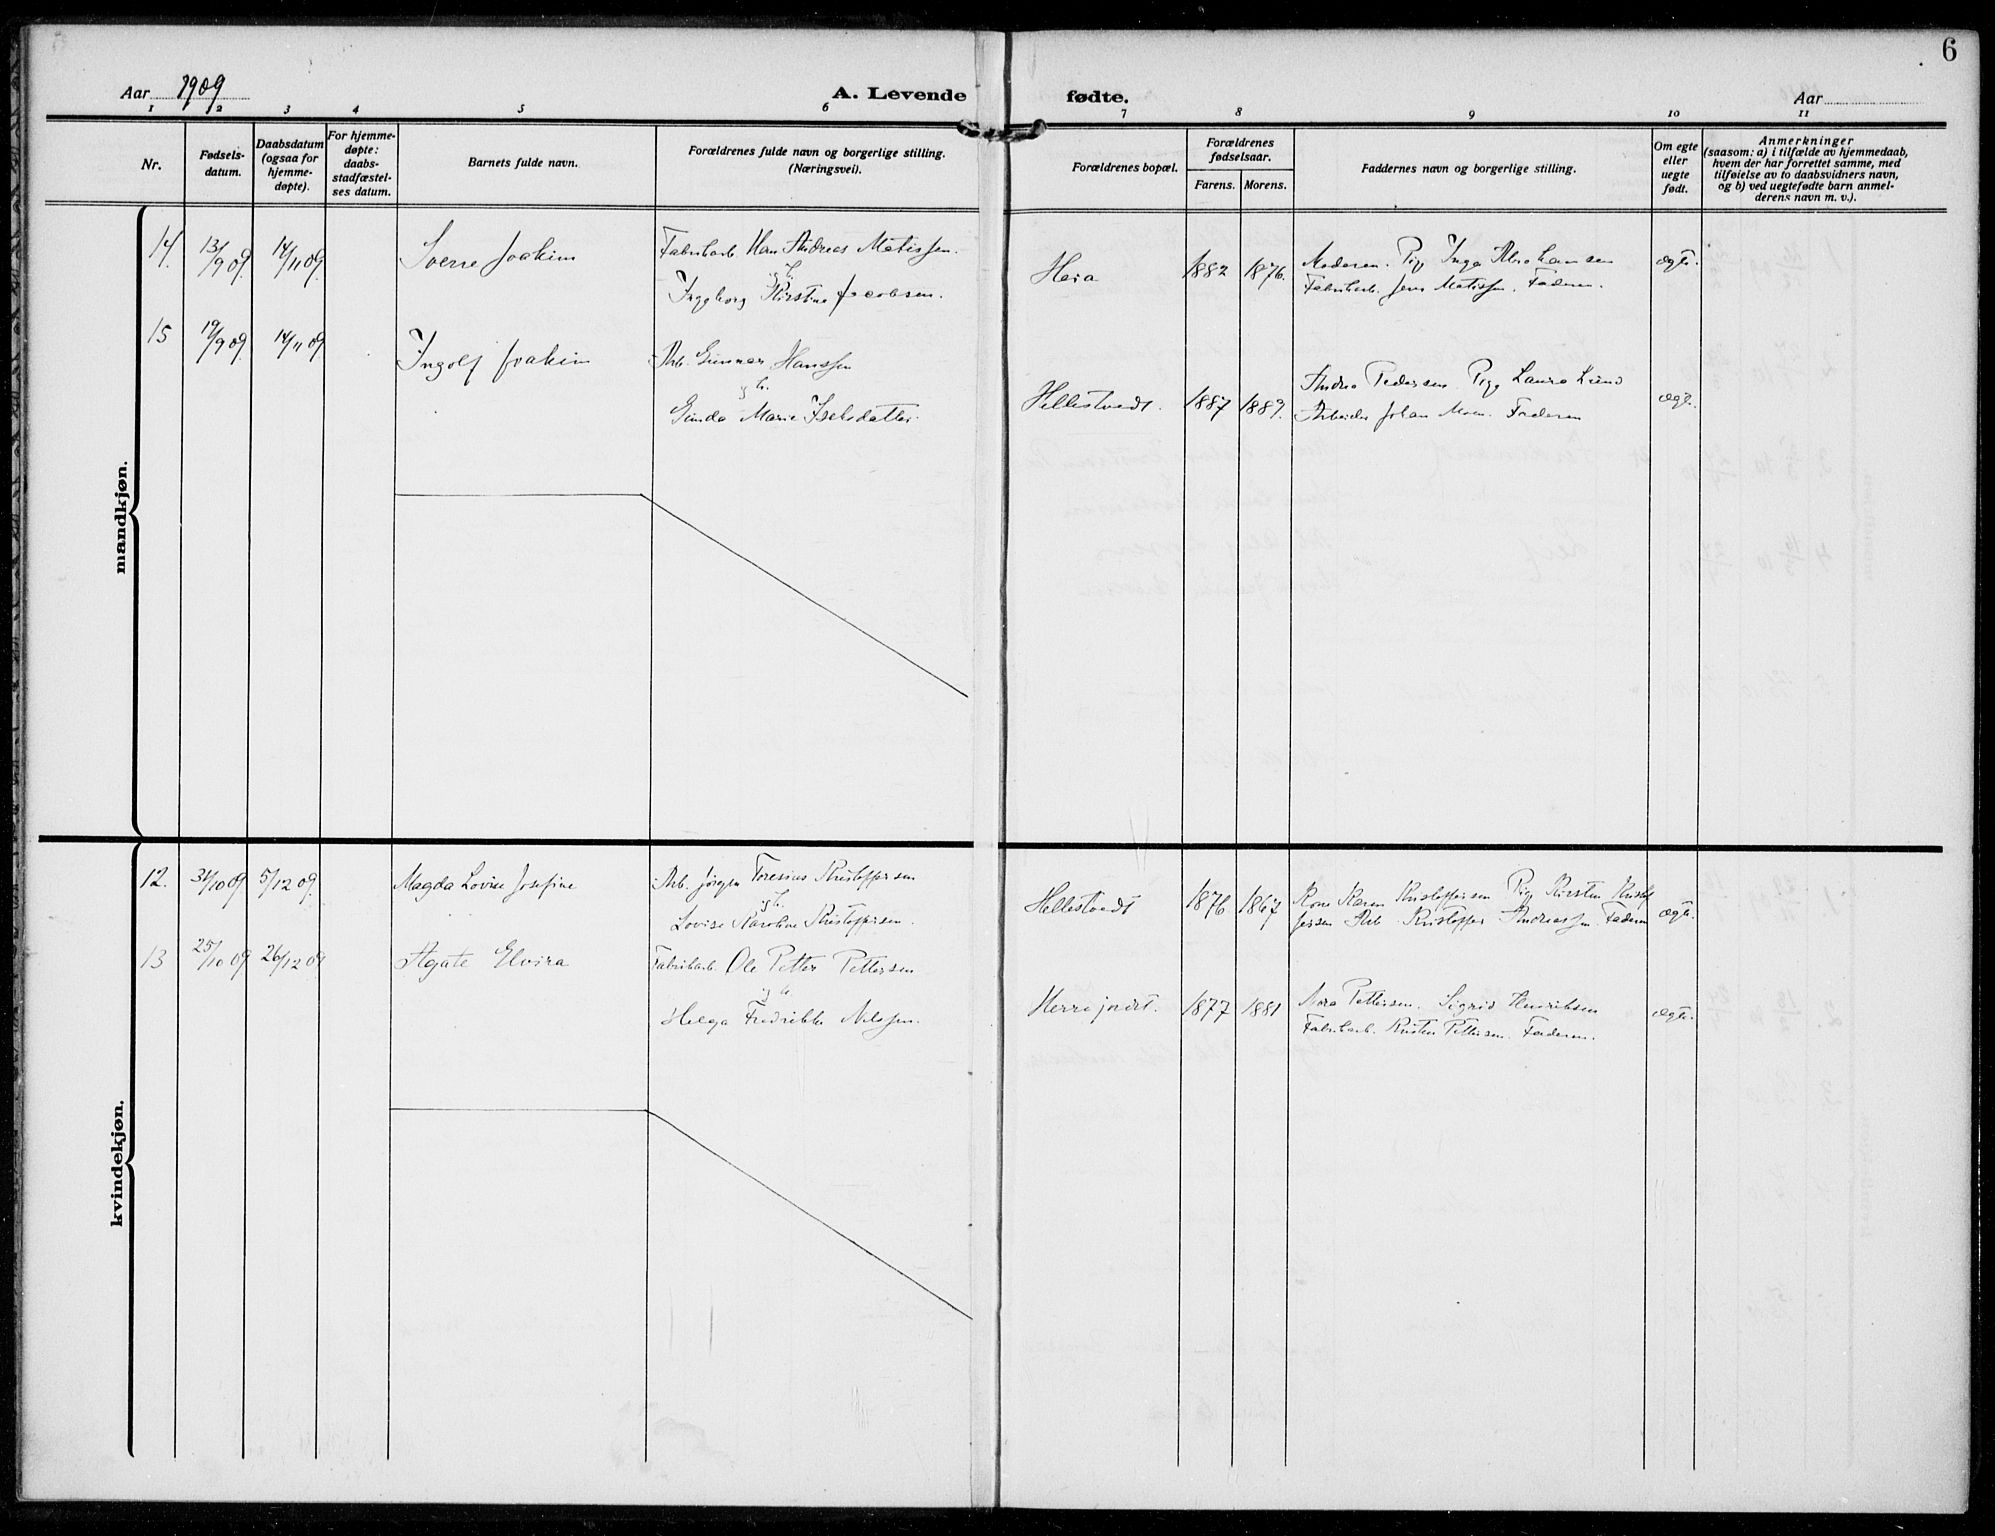 6
Aar 1909
A. Levende
fødte.
Aar
1 2 3 4 5 6 7 8 9 10 11
Nr.
Fødsels-
datum.
Daabsdatum
(ogsaa for
hjemme-
døpte).
For hjemme-
døpte:
daabs-
stadfæstel-
ses datum.
Barnets fulde navn.
Forældrenes fulde navn og borgerlige stilling.
(Næringsvei).
Forældrenes bopæl.
Forældrenes
fødselsaar.
Farens. Morens.
Faddernes navn og borgerlige stilling.
Om egte
eller
uegte
født.
Anmerkninger
(saasom: a) i tilfælde av hjemmedaab,
hvem der har forrettet samme, med
tilføielse av to daabsvidners navn,
og b) ved uegtefødte barn anmel-
derens navn m. v.).
mandkjøn.
14. 13/9 09. 14/11 09. Sverre Joakim
Fabrikarb. Hans Andreas Matissen.
og h.
Ingeborg Kirstine Jacobsen.
Heia 1882 1876.
Moderen. Pig Inga Abrahamsen
Fabrikarb. Jens Matissen. Faderen.
ægte.
15 19/9 09. 14/11 09 Ingolf Joakim
Arb. Gunnar Hanssen
og h.
Gunda Marie Iselsdatter.
Hellestvedt. 1887 1889.
Andrea Pedersen. Pige Laura Lund
Arbeider Johan Moen. Faderen
ægte.
kvindekjøn.
12. 31/10 09 5/12 09. Magda Lovise Josefine
Arb. Jørgen Toresius Kristoffersen
og h.
Lovise Karoline Kristoffersen.
Hellestvedt 1876 1867
Kone Karen Kristoffersen Pig Kirsten Kristof
fersen Arb. Kristoffer Andreassen. Faderen
ægte.
13 25/10 09 26/12 09 Agate Elvira
Fabrikarb. Ole Petter Pettersen
og h.
Helga Fredrikke Nilssen.
Herregaardt. 1877 1881
Nora Pettersen. Sigrid Henriksen
Fabrikarb. Kristen Pettersen. Faderen.
ægte.